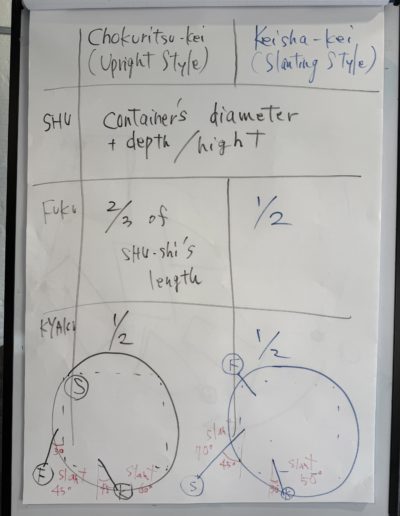 Chokuritsu-kei
(Upright Style)
Keisha-kei
(Slanting Style)
SHU
Container's diameter
+ depth/hight
FUKU
2/3 of
SHU-shi's
length
1/2
KYAKU
1/2
1/2
S
F
slant
45°
K
F
slant
70°
45°
S
slant
50°
K